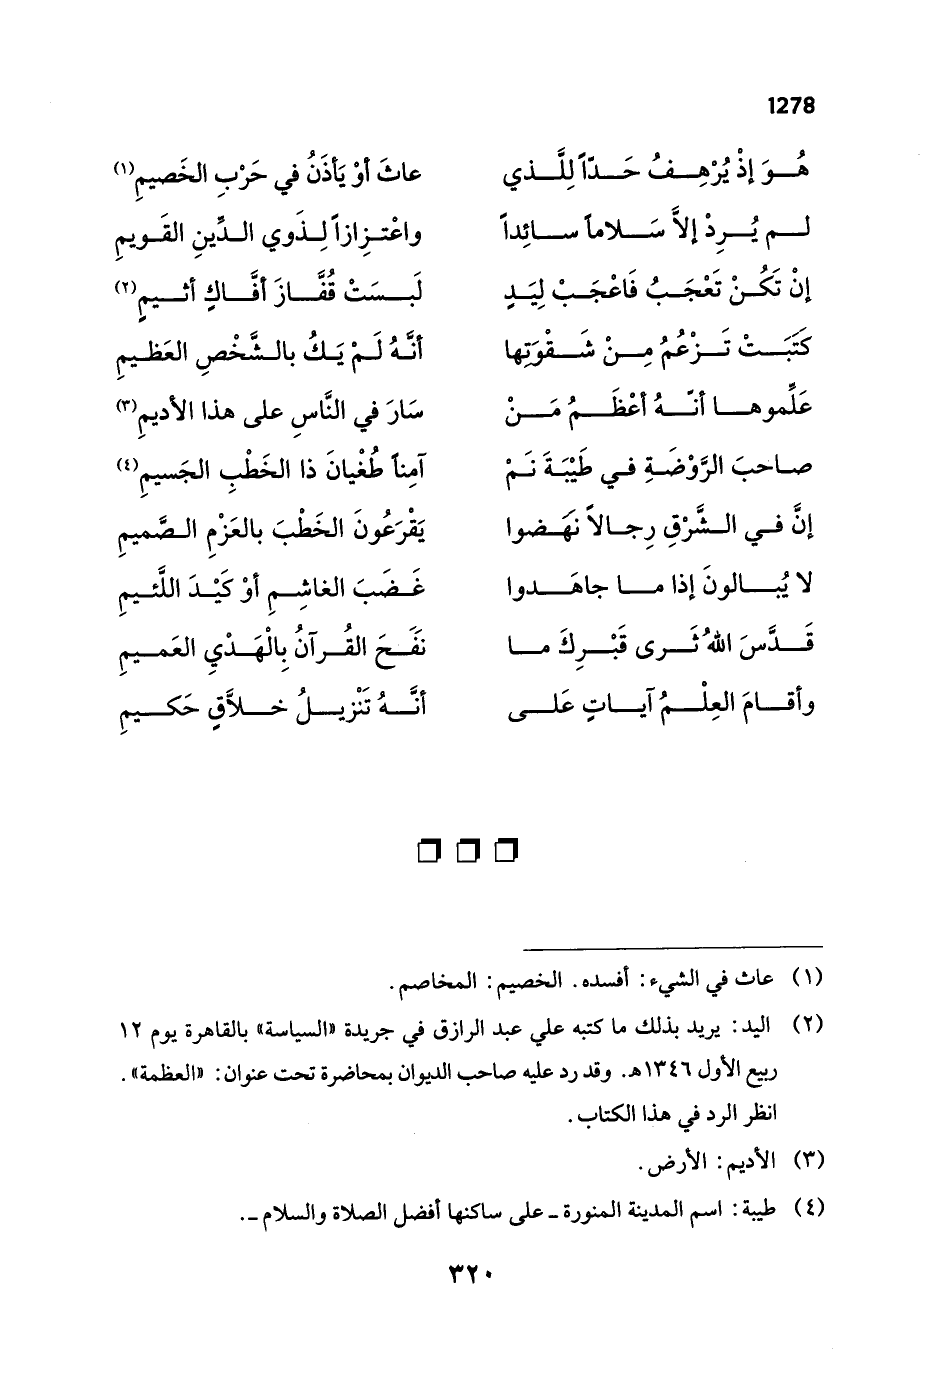 1278
هُوَ إذْ يُرْهِفُ حَدّاً لِلَّذي عاثَ أوْ يَأذَنُ في حَرْبِ الخَصيمِ(١)
لم يُرِدْ إلاَّ سَلاماً سائداً واعْتزازاً لِذَوي الدِّينِ القَويمِ
إنْ تَكُنْ تَعْجَبُ فَاعْجَبْ لِيَدٍ لَبِسَتْ قُفَّازَ أفَّاكٍ أثيمٍ(٢)
كَتَبَتْ تَزْعُمُ مِنْ شَقْوَتِها أنَّهُ لَمْ يَكُ بالشَّخْصِ العَظيمِ
عَلِّموها أنّهُ أعْظَمُ مَنْ سَارَ في النَّاسِ على هذا الأديمِ(٣)
صاحبَ الرَّوْضَةِ في طَيْبَةَ نَمْ آمِناً طُغْيانَ ذا الخَطْبِ الجَسيمِ(٤)
إنَّ في الشَّرْقِ رِجالاً نَهَضوا يَقْرَعُونَ الخَطْبَ بالعَزْمِ الصَّميمِ
لا يُبالونَ إذا ما جاهَدوا غَضَبَ الغاشِمِ أوْ كَيْدَ اللَّئيمِ
قَدَّسَ اللهُ ثَرى قَبْرِكَ ما نَفَحَ القُرآنُ بِالْهَدْيِ العَميمِ
وأقامَ العِلْمُ آياتٍ عَلى أنَّهُ تَنْزيلُ خلاَّقٍ حَكيمِ
(١) عاث في الشيء: أفسده. الخصيم: المخاصم.
(٢) اليد: يريد بذلك ما كتبه علي عبد الرازق في جريدة «السياسة» بالقاهرة يوم ١٢
ربيع الأول ١٣٤٦هـ. وقد رد عليه صاحب الديوان بمحاضرة تحت عنوان: «العظمة».
انظر الرد في هذا الكتاب.
(٣) الأديم: الأرض.
(٤) طيبة: اسم المدينة المنورة ـ على ساكنها أفضل الصلاة والسلام ـ.
٣٢٠